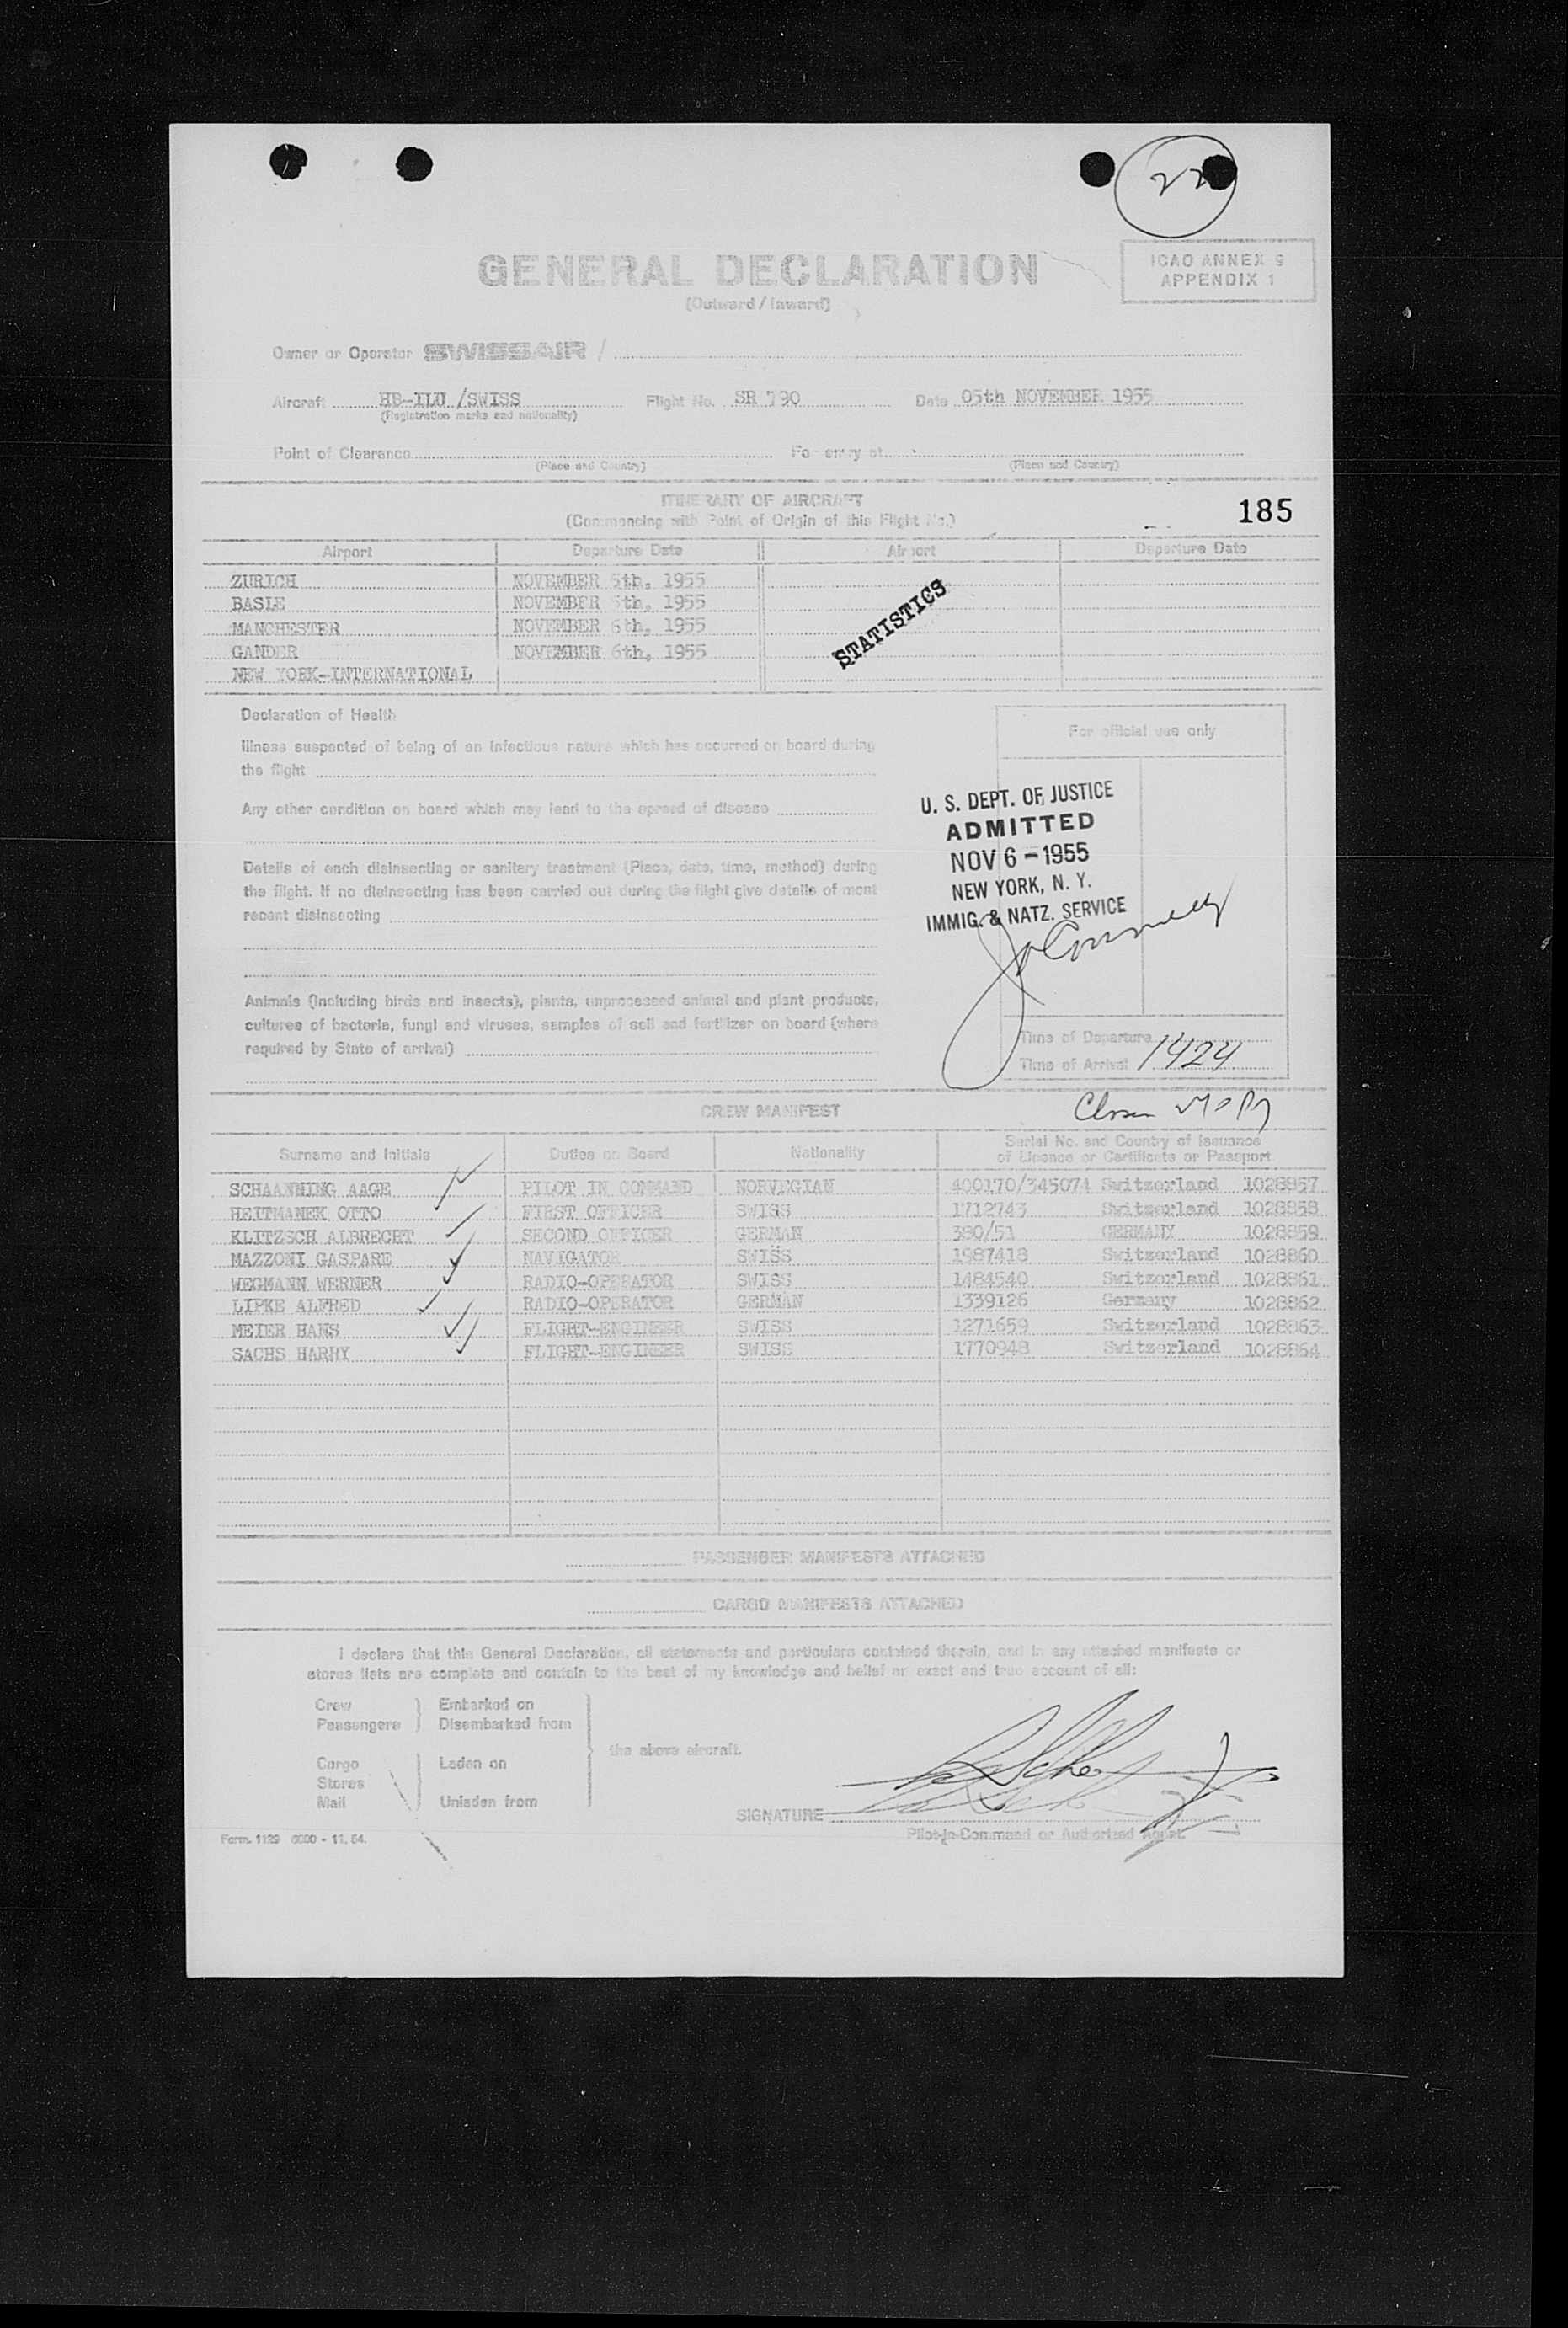 22
GENERAL DECLARATION
(Outward / Inward)
ICAO ANNEX 9
APPENDIX 1
Owner or Operator SWISSAIR /
Aircraft HB-ILU /SWISS Flight No. SR 790 Date 05th NOVEMBER 1955
(Registration marks and nationality)
Point of Clearance For entry at
(Place and Country) (Place and Country)
ITINERARY OF AIRCRAFT
(Commencing with Point of Origin of this Flight No.)
185
Airport Departure Date Airport Departure Date
ZURICH NOVEMBER 5th, 1955
BASLE NOVEMBER 5th, 1955
MANCHESTER NOVEMBER 6th, 1955
GANDER NOVEMBER 6th, 1955
NEW YORK-INTERNATIONAL
STATISTICS
Declaration of Health
Illness suspected of being of an infectious nature which has occurred on board during
the flight
Any other condition on board which may lead to the spread of disease
Details of each disinsecting or sanitary treatment (Place, date, time, method) during
the flight. If no disinsecting has been carried out during the flight give details of most
recent disinsecting
Animals (including birds and insects), plants, unprocessed animal and plant products,
cultures of bacteria, fungi and viruses, samples of soil and fertilizer on board (where
required by State of arrival)
For official use only
U. S. DEPT. OF JUSTICE
ADMITTED
NOV 6 - 1955
NEW YORK, N. Y.
IMMIG. & NATZ. SERVICE
Time of Departure
Time of Arrival 1424
CREW MANIFEST
Surname and Initials Duties on Board Nationality Serial No. and Country of Issuance
of Licence or Certificate or Passport
SCHAANNING AAGE PILOT IN COMMAND NORVEGIAN 400170/345074 Switzerland 1028857
HEITMANEK OTTO FIRST OFFICER SWISS 1712743 Switzerland 1028858
KLITZSCH ALBRECHT SECOND OFFICER GERMAN 380/51 GERMANY 1028859
MAZZONI GASPARE NAVIGATOR SWISS 1987418 Switzerland 1028860
WEGMANN WERNER RADIO-OPERATOR SWISS 1484540 Switzerland 1028861
LIPKE ALFRED RADIO-OPERATOR GERMAN 1339126 Germany 1028862
MEIER HANS FLIGHT-ENGINEER SWISS 1271659 Switzerland 1028863
SACHS HARRY FLIGHT-ENGINEER SWISS 1770948 Switzerland 1028864
PASSENGER MANIFESTS ATTACHED
CARGO MANIFESTS ATTACHED
I declare that this General Declaration, all statements and particulars contained therein, and in any attached manifests or
stores lists are complete and contain to the best of my knowledge and belief an exact and true account of all:
Crew Embarked on
Passengers Disembarked from
the above aircraft.
Cargo Laden on
Stores
Mail Unladen from
SIGNATURE
Pilot-in-Command or Authorized Agent.
Form. 1129 6000 - 11. 54.